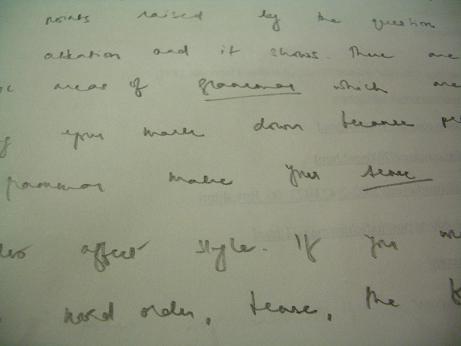 points raised by the question
attention and it shows. There are
areas of grammar which are
your mark down because
grammar make your sense
affect style. If you
word order, tense, the